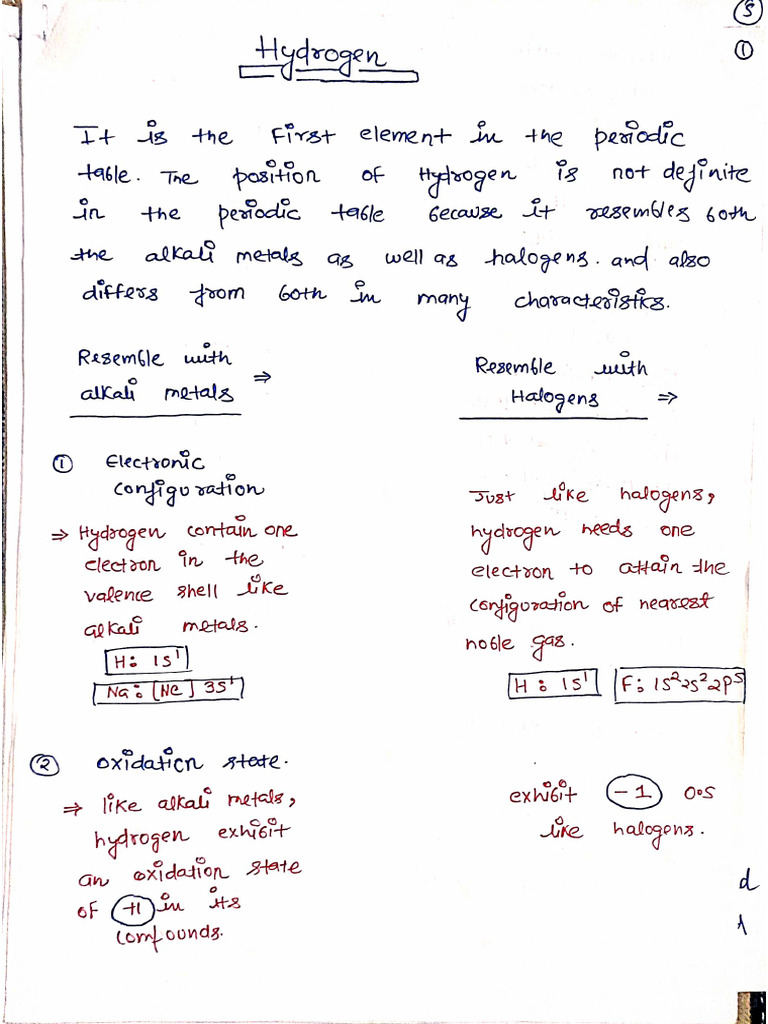 S
1
Hydrogen
It is the First element in the periodic
table. The position of Hydrogen is not definite
in the periodic table because it resembles both
the alkali metals as well as halogens. and also
differs from both in many characteristics.
Resemble with
alkali metals ⇒
Resemble with
Halogens ⇒
① Electronic
configuration
⇒ Hydrogen contain one
electron in the
valence shell like
alkali metals.
H: 1s¹
Na: [Ne] 3s¹
Just like halogens,
hydrogen needs one
electron to attain the
configuration of nearest
noble gas.
H: 1s¹ F: 1s²2s²2p⁵
② oxidation state.
⇒ like alkali metals,
hydrogen exhibit
an oxidation state
of +1 in its
compounds.
exhibit -1 o.s
like halogens.
d